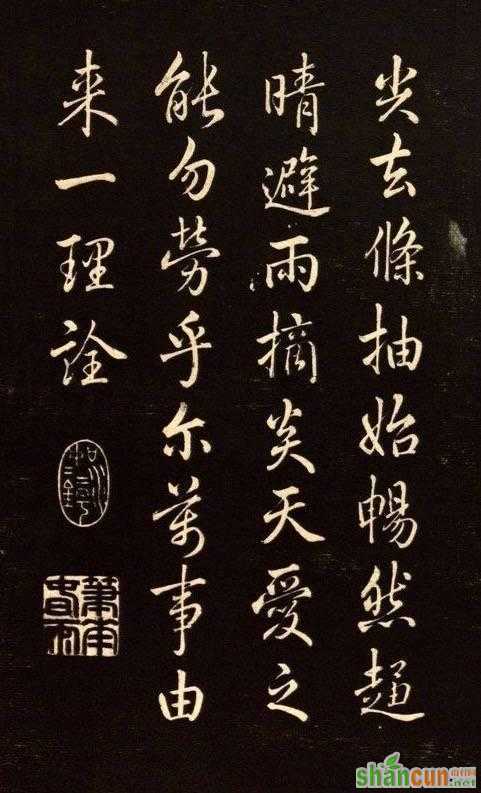 尖去條抽始暢然趁
晴避雨摘炎天愛之
能勿勞乎尔萬事由
来一理詮
shancun
.net